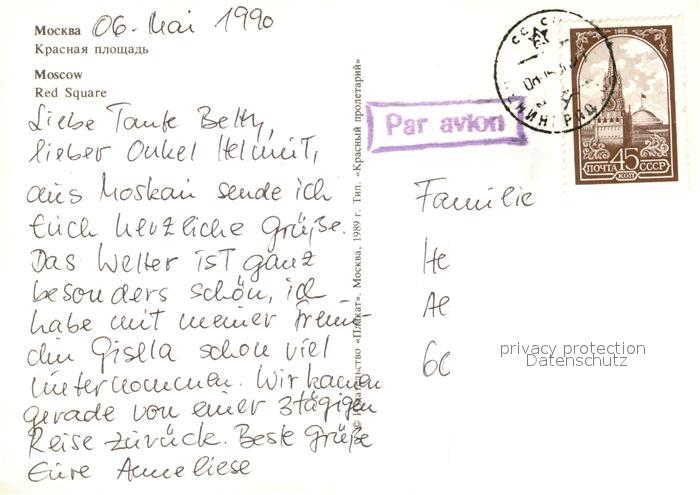 Москва 06. Mai 1990
Красная площадь
Moscow
Red Square
Liebe Tante Betty,
lieber Onkel Helmut,
aus Moskau sende ich
Euch herzliche Grüße.
Das Wetter ist ganz
besonders schön, ich
habe mit meiner Freun-
din Gisella schon viel
unternommen. Wir kamen
gerade von einer 3tägigen
Reise zurück. Beste Grüße
Eure Anneliese
© Издательство «Плакат». Москва, 1989 г. Тип. «Красный пролетарий»
Par avion
1982
ПОЧТА 45 СССР
КОП
Familie
He
Ae
60
privacy protection
Datenschutz